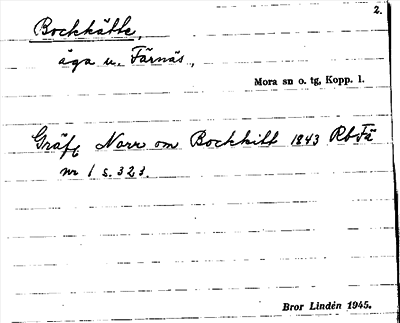 2.
Bockhätte,
äga u. Färnäs.,
Mora sn o. tg, Kopp. l.
Gräf, Norr om Bockhitt 1843 RbFä
nr 1 s. 323.
Bror Lindén 1945.